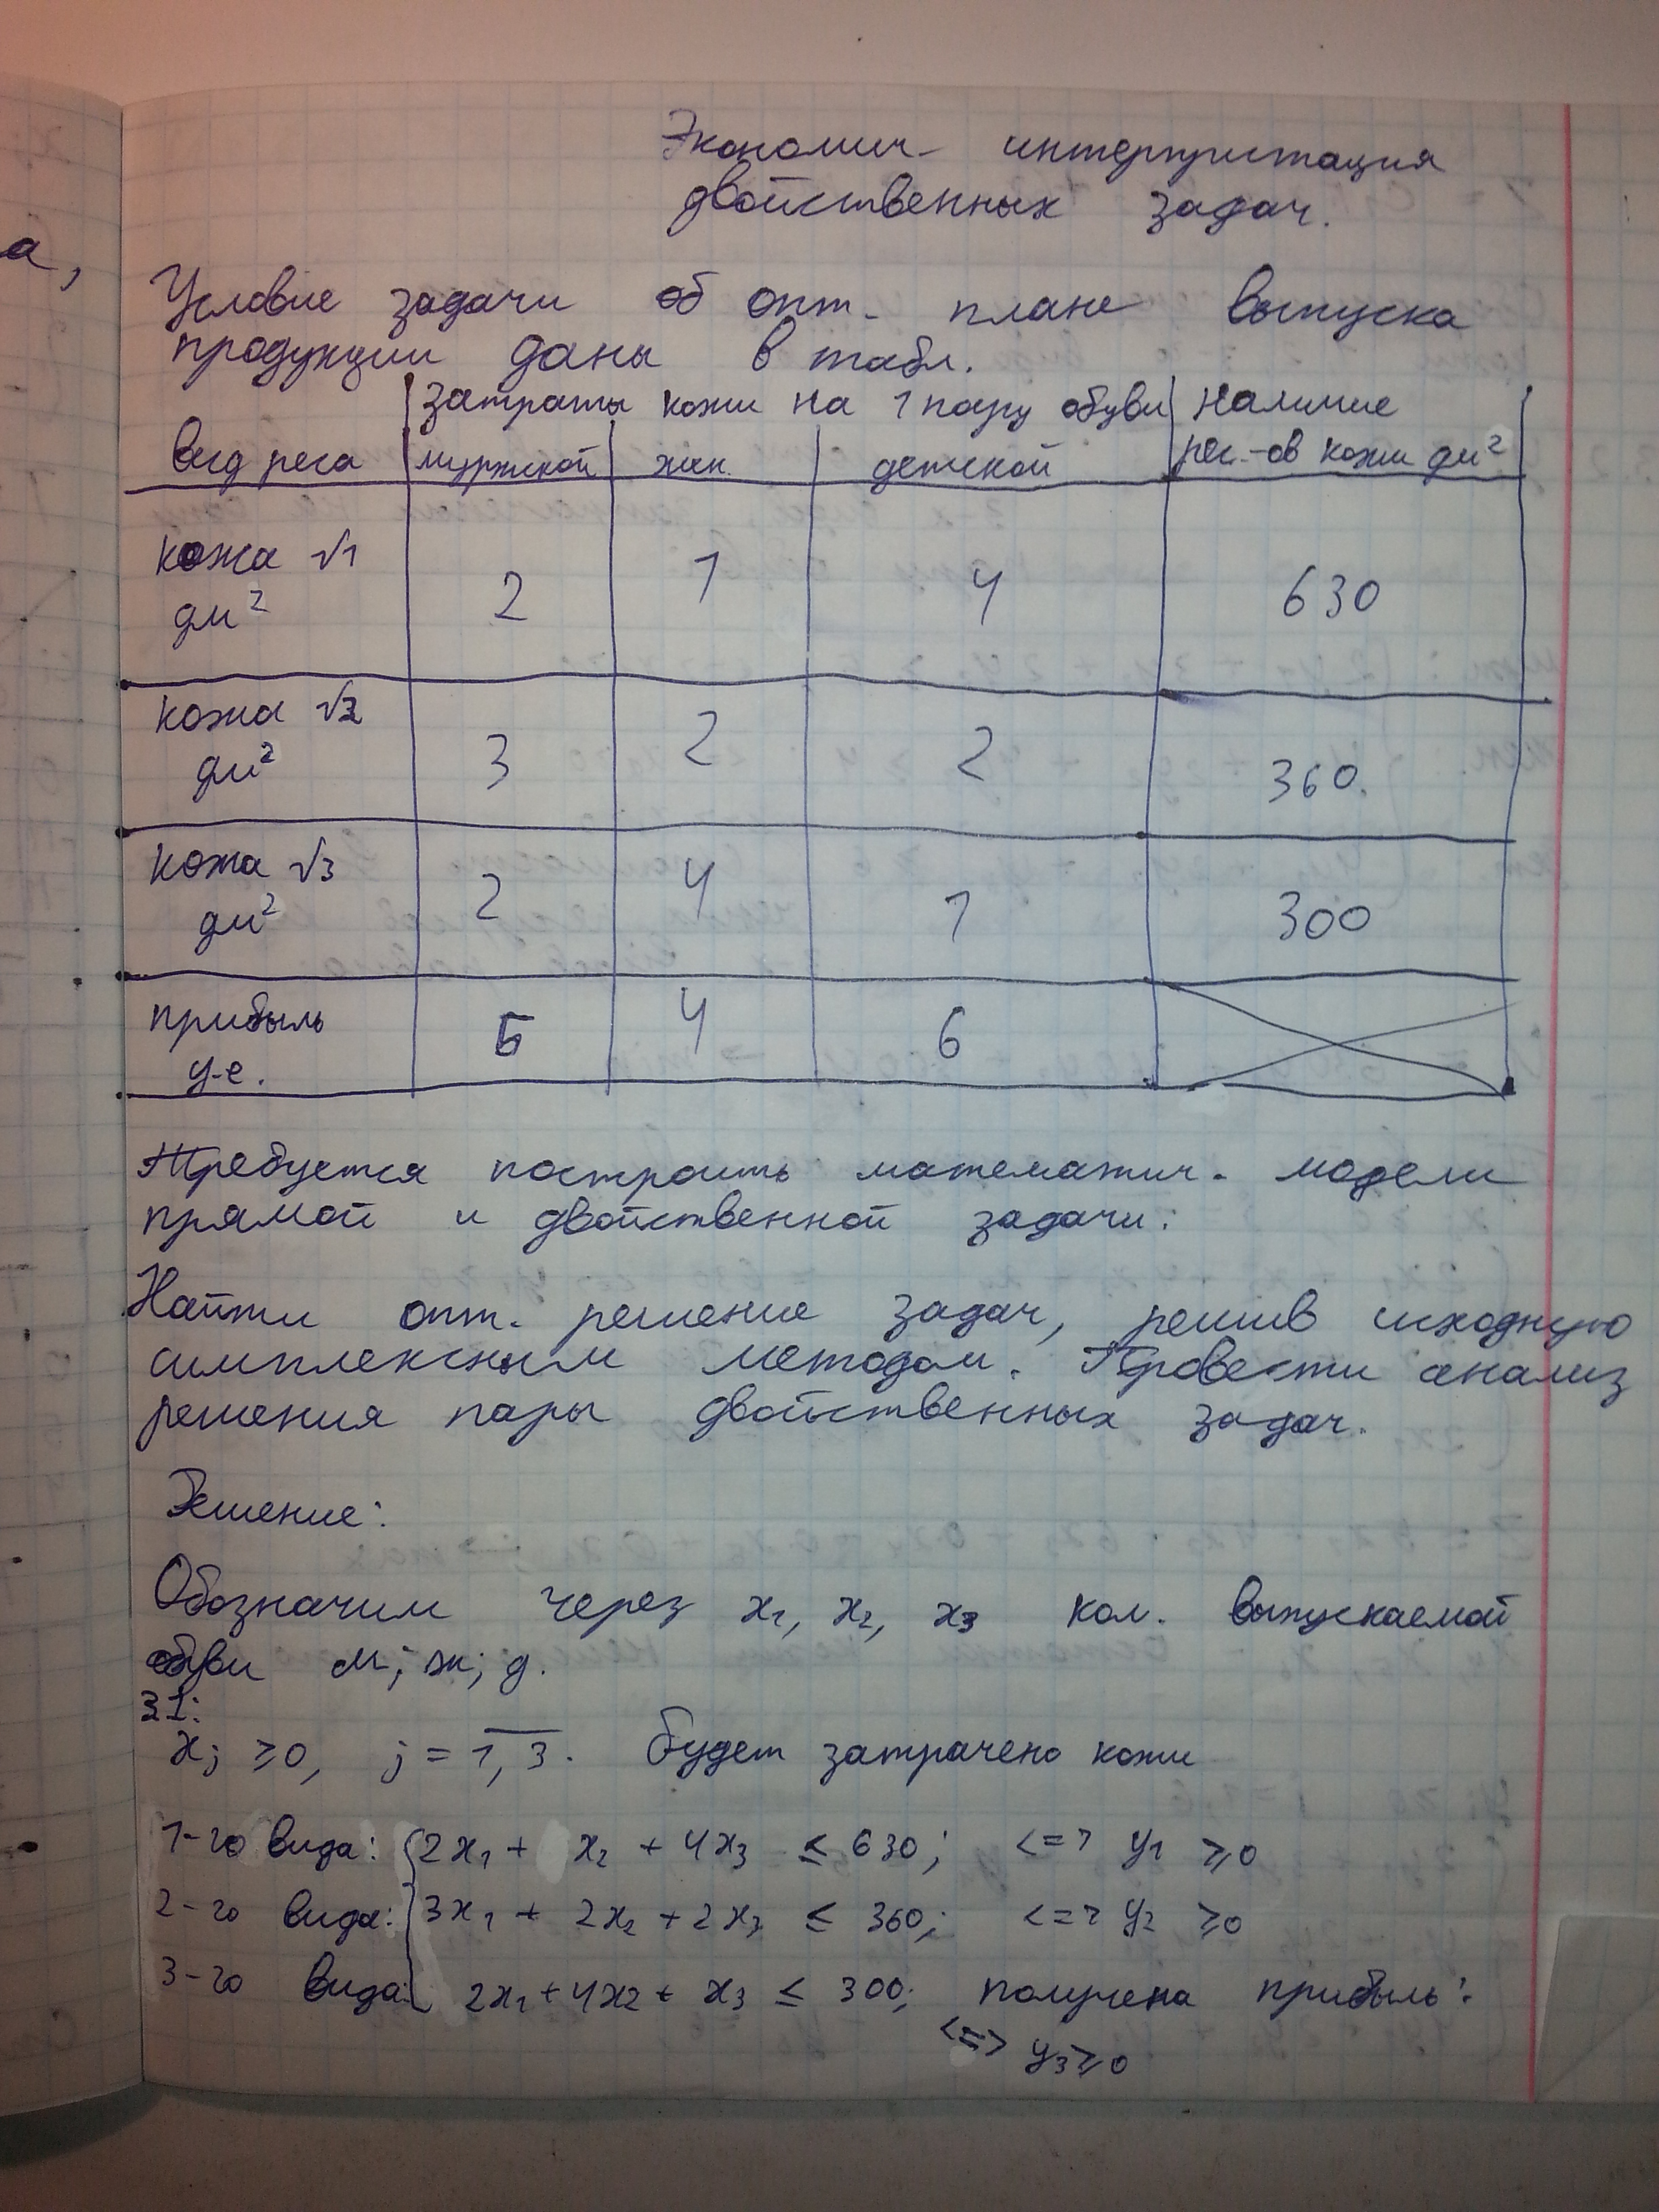 Экономич- интерпритация
двойственных задач.
а,
Условие задачи об опт. плане выпуска
продукции даны в табл.
вид реса | затраты кожи на 1 пару обуви | наличие рес-ов кожи дм²
мужской | жен. | детской
кожа √1 дм² | 2 | 1 | 4 | 630
кожа √2 дм² | 3 | 2 | 2 | 360.
кожа √3 дм² | 2 | 4 | 1 | 300
прибыль у.е. | 5 | 4 | 6
Требуется построить математич. модели
прямой и двойственной задачи.
Найти опт. решение задач, решив исходную
симплексным методом. Провести анализ
решения пары двойственных задач.
Решение:
Обозначим через x₁, x₂, x₃ кол. выпускаемой
обуви м; ж; д.
31:
xj ≥0, j = 1,3. будет затрачено кожи
1-го вида: { 2x₁ + x₂ + 4x₃ ≤ 630; <=> y₁ ≥0
2-го вида: 3x₁ + 2x₂ + 2x₃ ≤ 360; <=> y₂ ≥0
3-го вида: 2x₁ + 4x₂ + x₃ ≤ 300; получена прибыль:
<=> y₃≥0